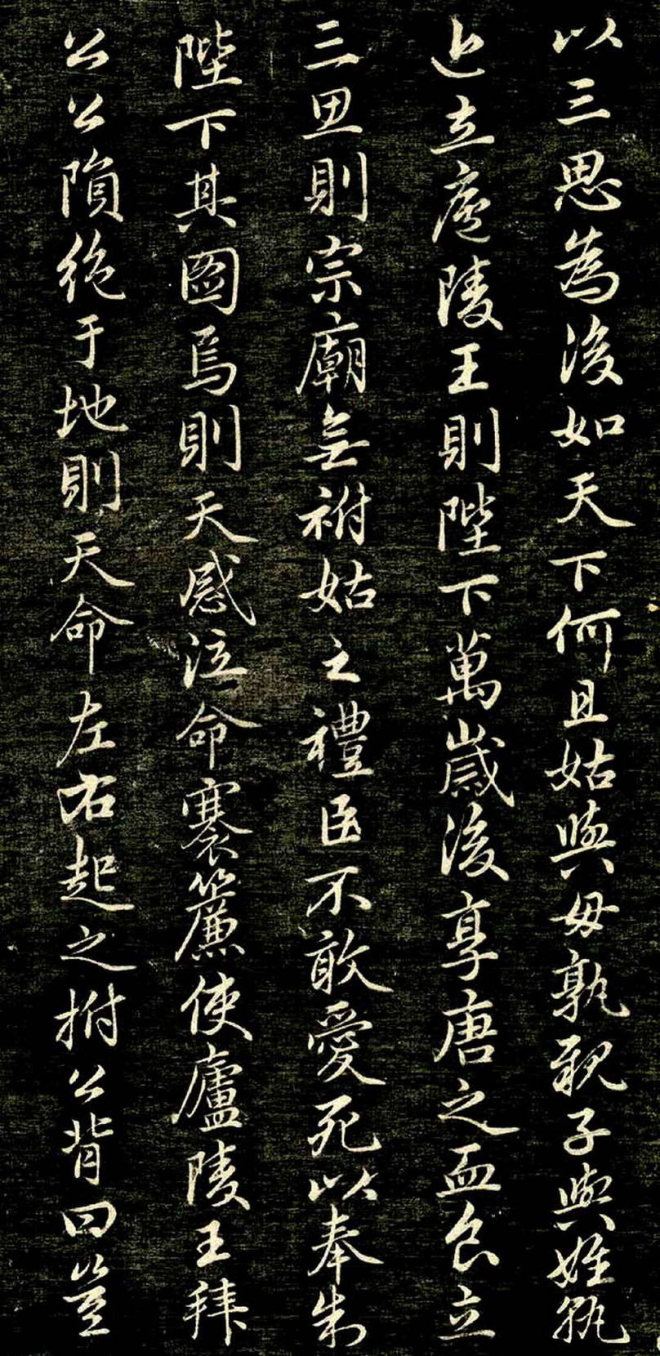 以三思為後如天下何且姑與母孰親子與姪孰
近立廬陵王則陛下萬歲後享唐之血食立
三思則宗廟無祔姑之禮臣不敢愛死以奉制
陛下其圖焉則天感泣命褰簾使廬陵王拜
公公隕絶于地則天命左右起之拊公背曰豈